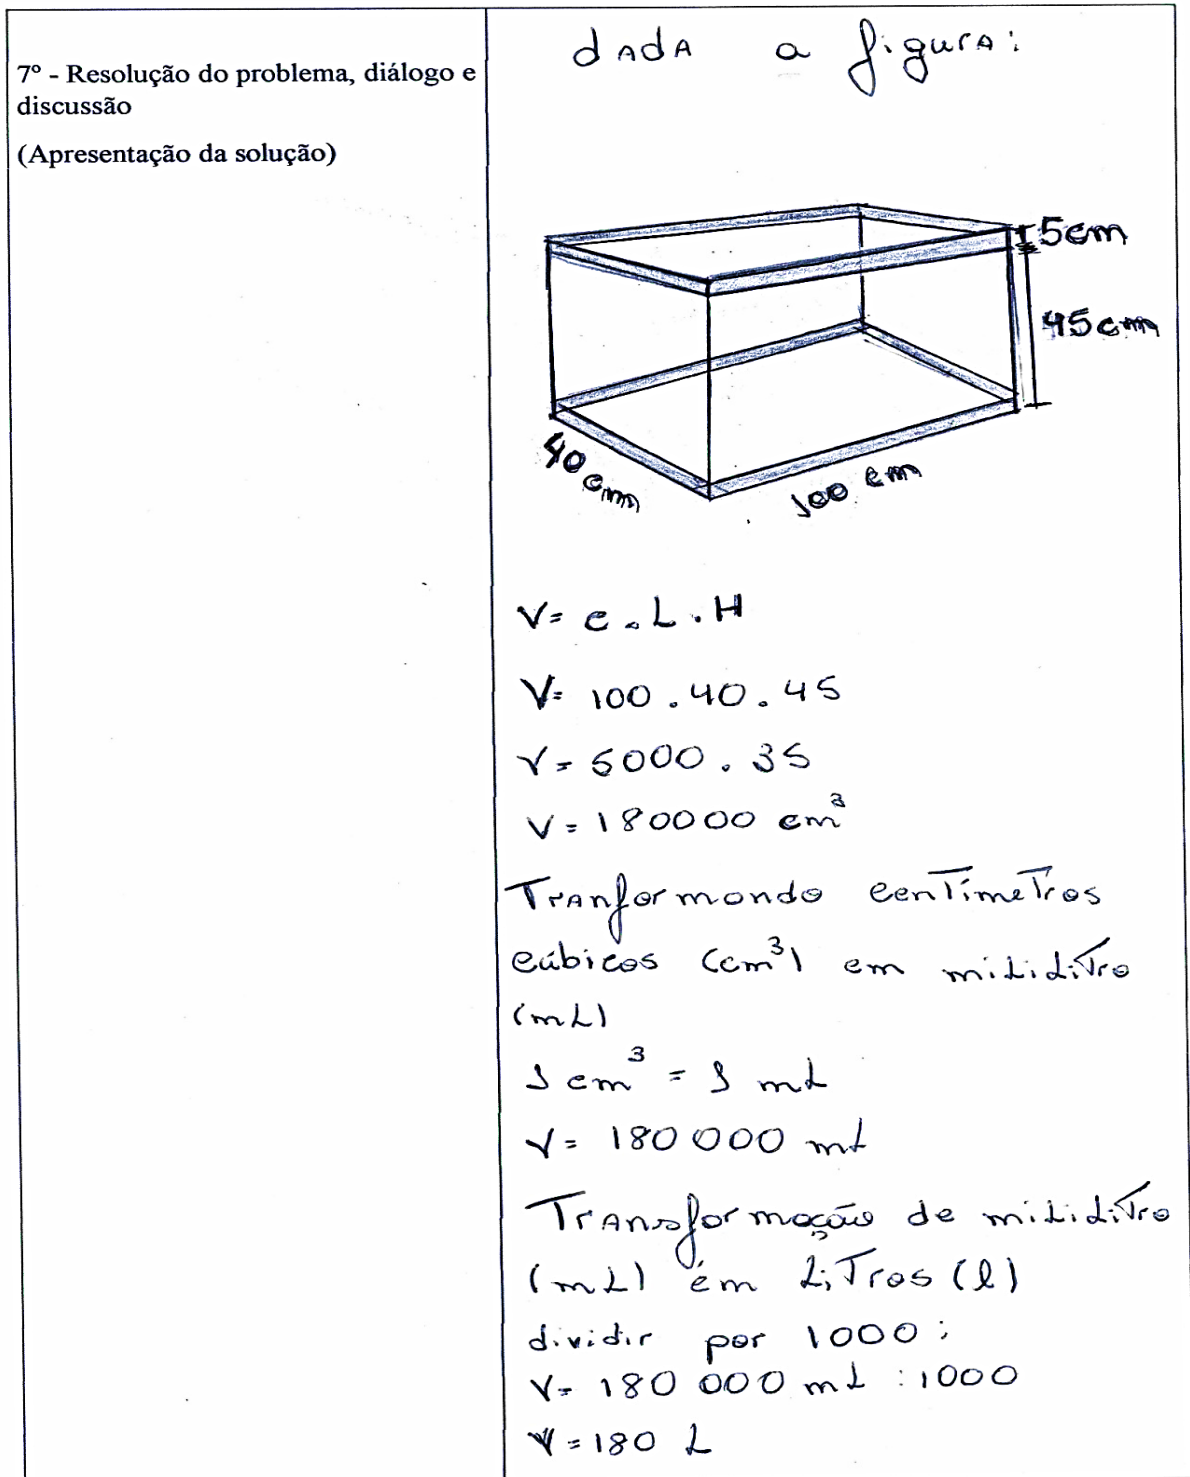 7º - Resolução do problema, diálogo e
discussão
(Apresentação da solução)
dada a figura:
5cm
45cm
40cm
100 cm
V= c.L.H
V= 100.40.45
V= 5000.35
V= 180000 cm³
Tranformando centímetros
cúbicos (cm³) em mililitro
(mL)
1 cm³ = 1 mL
V= 180 000 mL
Transformação de mililitro
(mL) em Litros (l)
dividir por 1000:
V= 180 000 mL :1000
V=180 L